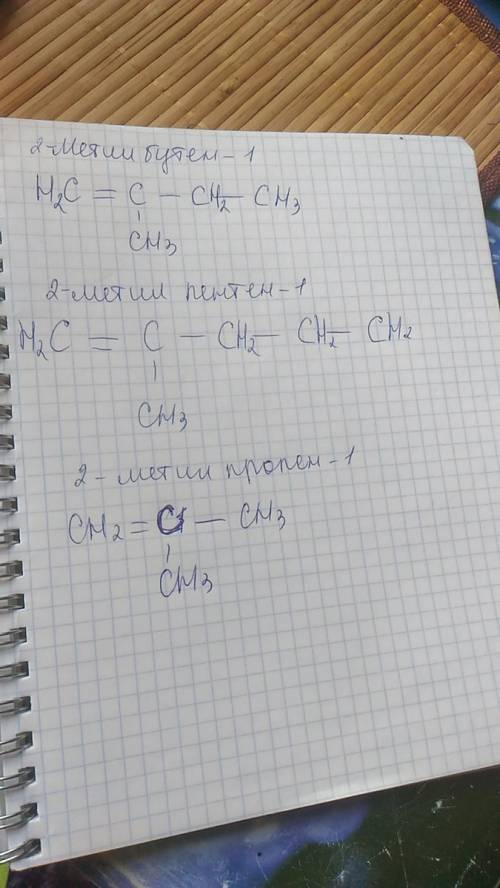 2-метил бутен-1
H2C = C - CH2 - CH3
CH3
2-метил пентен-1
H2C = C - CH2 - CH2 - CH2
CH3
2-метил пропен-1
CH2 = C - CH3
CH3